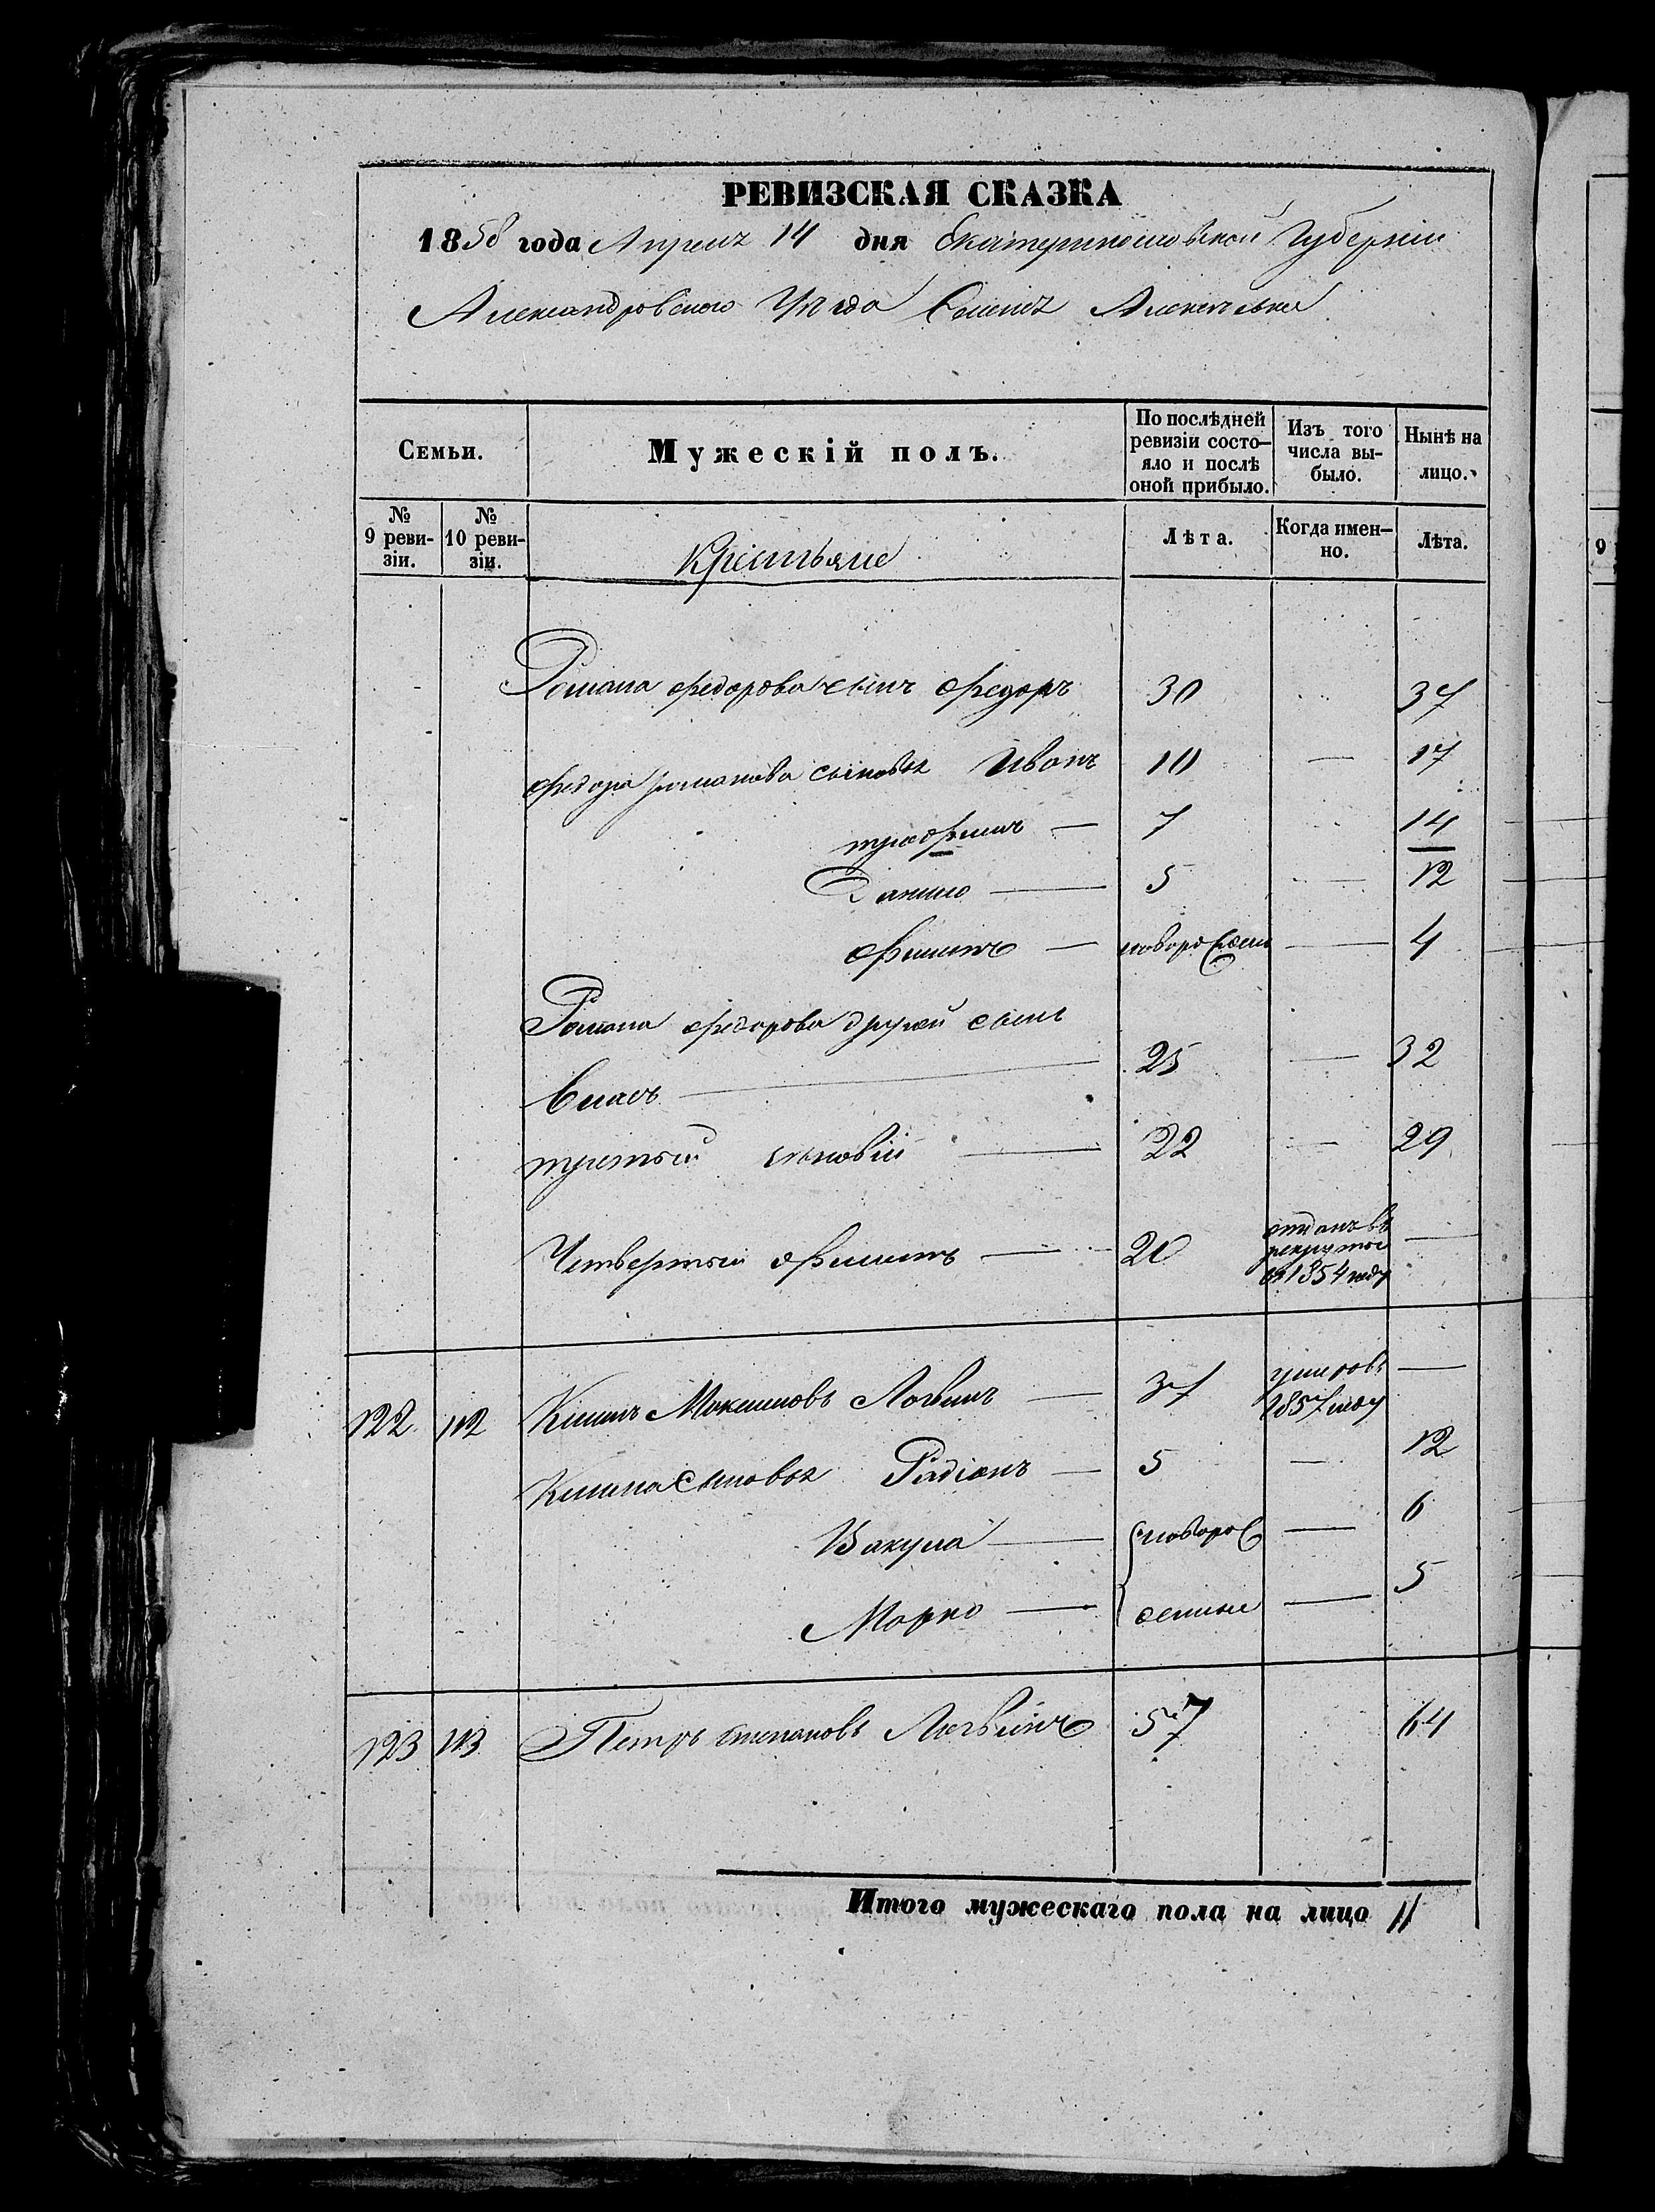 РЕВИЗСКАЯ СКАЗКА
1858 года Апреля 14 дня Екатеринославской Губерніи
Александровского Уѣзда Селенія
Семьи. Мужескій полъ. По послѣдней ревизіи состо-яло и послѣ оной прибыло. Изъ того числа вы-было. Нынѣ на лицо.
№ 9 реви-зіи. № 10 реви-зіи. Крестьяне Лѣта. Когда имен-но. Лѣта.
9
Романа федорова сынъ федоръ 30 37
федора романова сыновья Иванъ 10 — 17
трофимъ — 7 14
Данило — 5 — 12
филипъ — новорожден — 4
Романа федорова другой сынъ
Власъ — 25 — 32
третьй — 22 — 29
Четвертый филипъ — 20 отданъ въ рекруты въ 1854 году —
122 112 Климъ Максимовъ Логвинъ — 37 умеръ въ 1857 году —
Клима сыновья Радіонъ — 5 — 12
Вакула — {новорож — 6
Марко — денные — 5
123 113 Петръ степановъ Логвинъ 57 64
Итого мужескаго пола на лицо 11